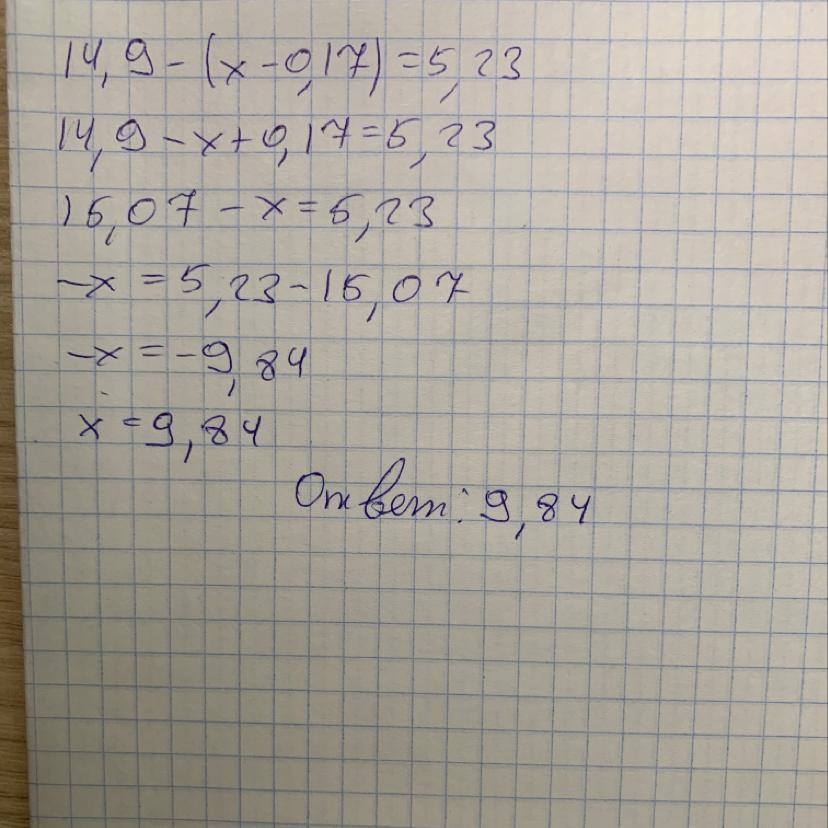 14,9 - (x - 0,17) = 5,23
14,9 - x + 0,17 = 5,23
15,07 - x = 5,23
-x = 5,23 - 15,07
-x = -9,84
x = 9,84
Ответ: 9,84